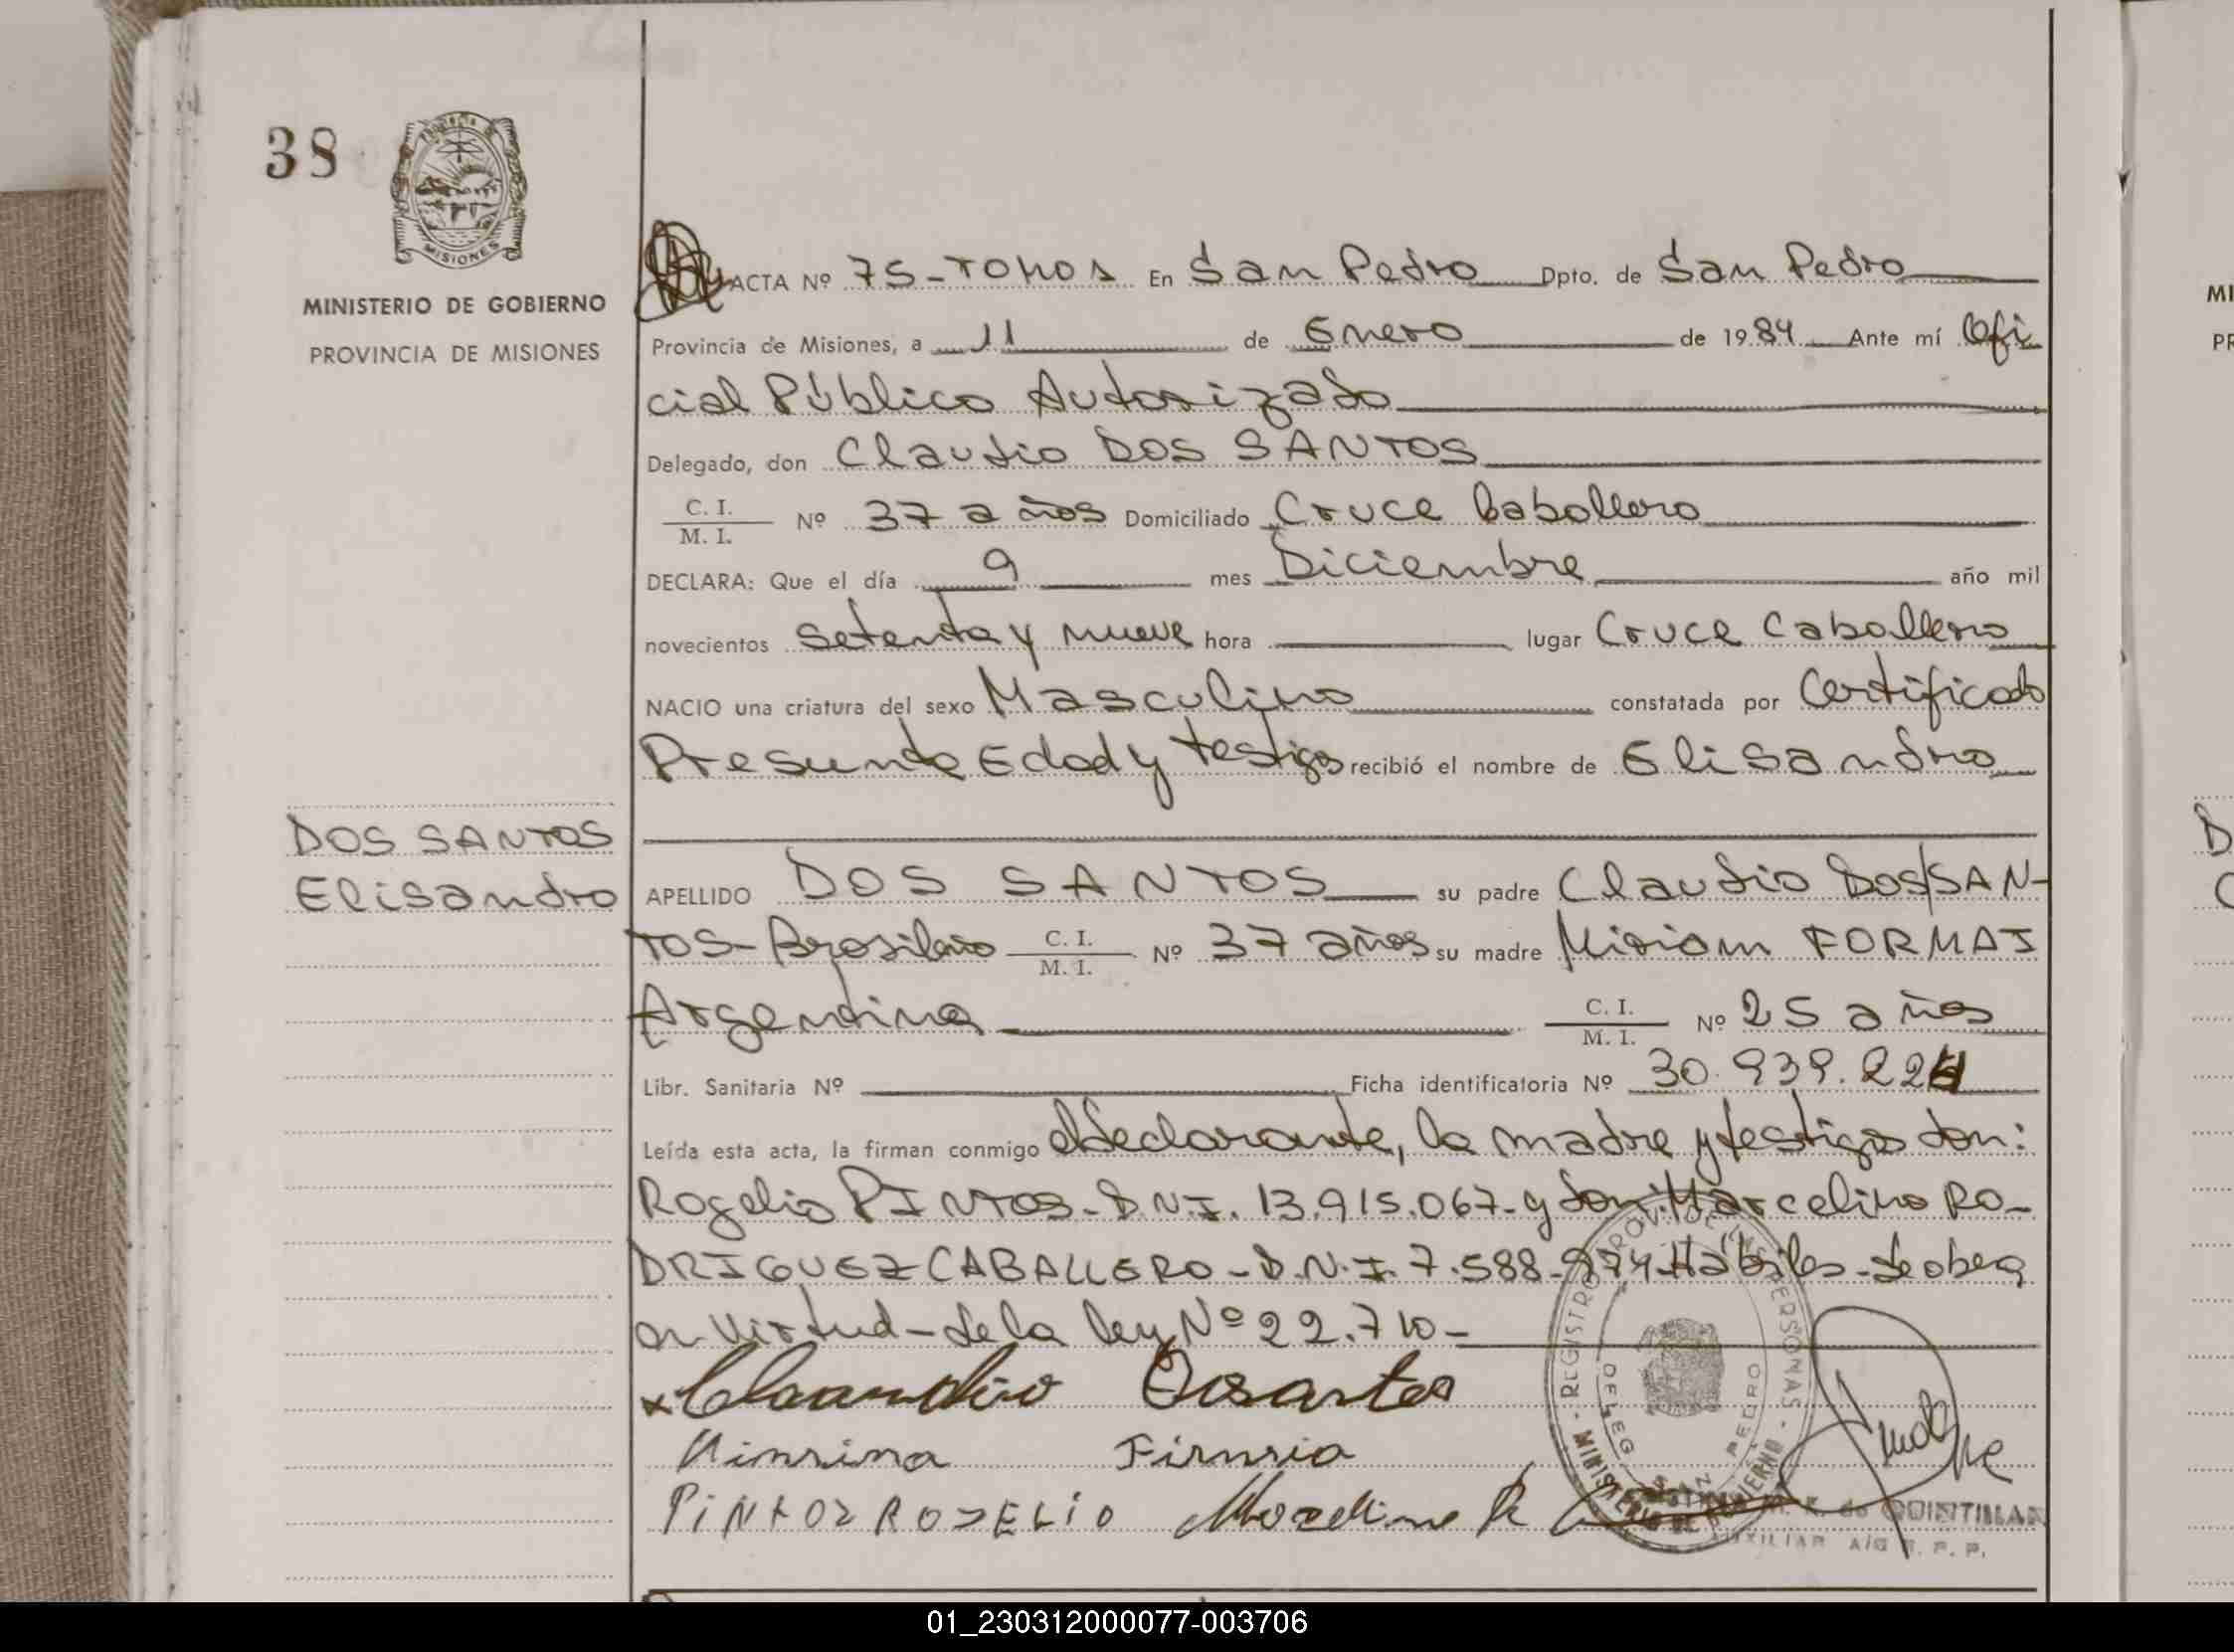 38
PROVINCIA DE
MISIONES
MINISTERIO DE GOBIERNO
PROVINCIA DE MISIONES
ACTA Nº 75-TOMO 1 En San Pedro Dpto. de San Pedro
Provincia de Misiones, a 11 de Enero de 1984 Ante mí Ofi
cial Público Autorizado
Delegado, don Claudio DOS SANTOS
C. I.
M. I. Nº 37 años Domiciliado Cruce Caballero
DECLARA: Que el día 9 mes Diciembre año mil
novecientos setenta y nueve hora lugar Cruce Caballero
NACIO una criatura del sexo Masculino constatada por Certificado
Presunta Edad y testigos recibió el nombre de Elisandro
DOS SANTOS
Elisandro
APELLIDO DOS SANTOS su padre Claudio DOS SAN-
TOS-Brasileño C. I. M. I. Nº 37 años su madre Miriam FORMAI
Argentina C. I. M. I. Nº 25 años
Libr. Sanitaria Nº Ficha identificatoria Nº 30.939.224
Leída esta acta, la firman conmigo el declarante, la madre y testigos don:
Rogelio PINTOS-D.N.I. 13.915.067-y don: Marcelino RO-
DRIGUEZ CABALLERO-D.N.I. 7.588.974 Hábiles-se obra
en virtud-de la ley Nº 22.710-
Claudio
PINTOZ ROJELIO
REGISTRO PROV. DE LAS PERSONAS
MINISTERIO DE GOBIERNO
DELEG. SAN PEDRO
de QUINTILLAN
AUXILIAR
MI
PR
D
01_230312000077-003706